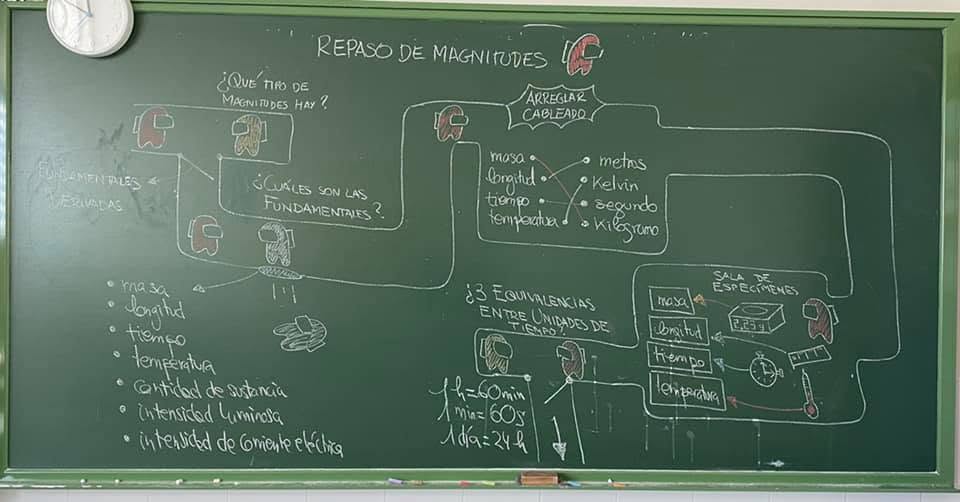 REPASO DE MAGNITUDES
¿QUÉ TIPO DE
MAGNITUDES HAY?
FUNDAMENTALES
DERIVADAS
¿CUÁLES SON LAS
FUNDAMENTALES?
• masa
• longitud
• tiempo
• temperatura
• cantidad de sustancia
• intensidad luminosa
• intensidad de corriente eléctrica
ARREGLAR
CABLEADO
masa
longitud
tiempo
temperatura
metros
Kelvin
segundo
Kilogramo
¿3 EQUIVALENCIAS
ENTRE UNIDADES DE
TIEMPO?
1 h = 60 min
1 min = 60 s
1 día = 24 h
SALA DE
ESPECÍMENES
masa
longitud
tiempo
temperatura
2,23 g